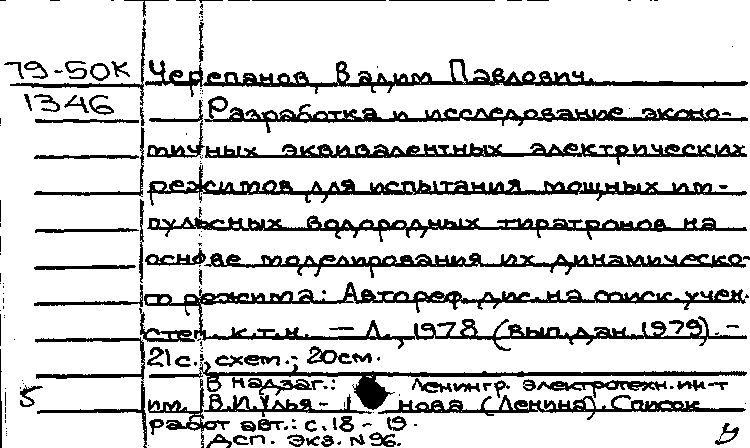 79-50К Черепанов, Вадим Павлович.
1346 Разработка и исследование эконо-
мичных эквивалентных электрических
режимов для испытания мощных им-
пульсных водородных тиратронов на
основе моделирования их динамическо-
го режима: Автореф. дис. на соиск. учен.
степ. к.т.н. — Л., 1978 (вып. дан. 1979). -
21 с., схем.; 20 см.
В надзаг.: Ленингр. электротехн. ин-т
5 им. В.И. Улья- нова (Ленина). Список
работ авт.: с. 18 - 19.
Дсп. Экз. N 96.